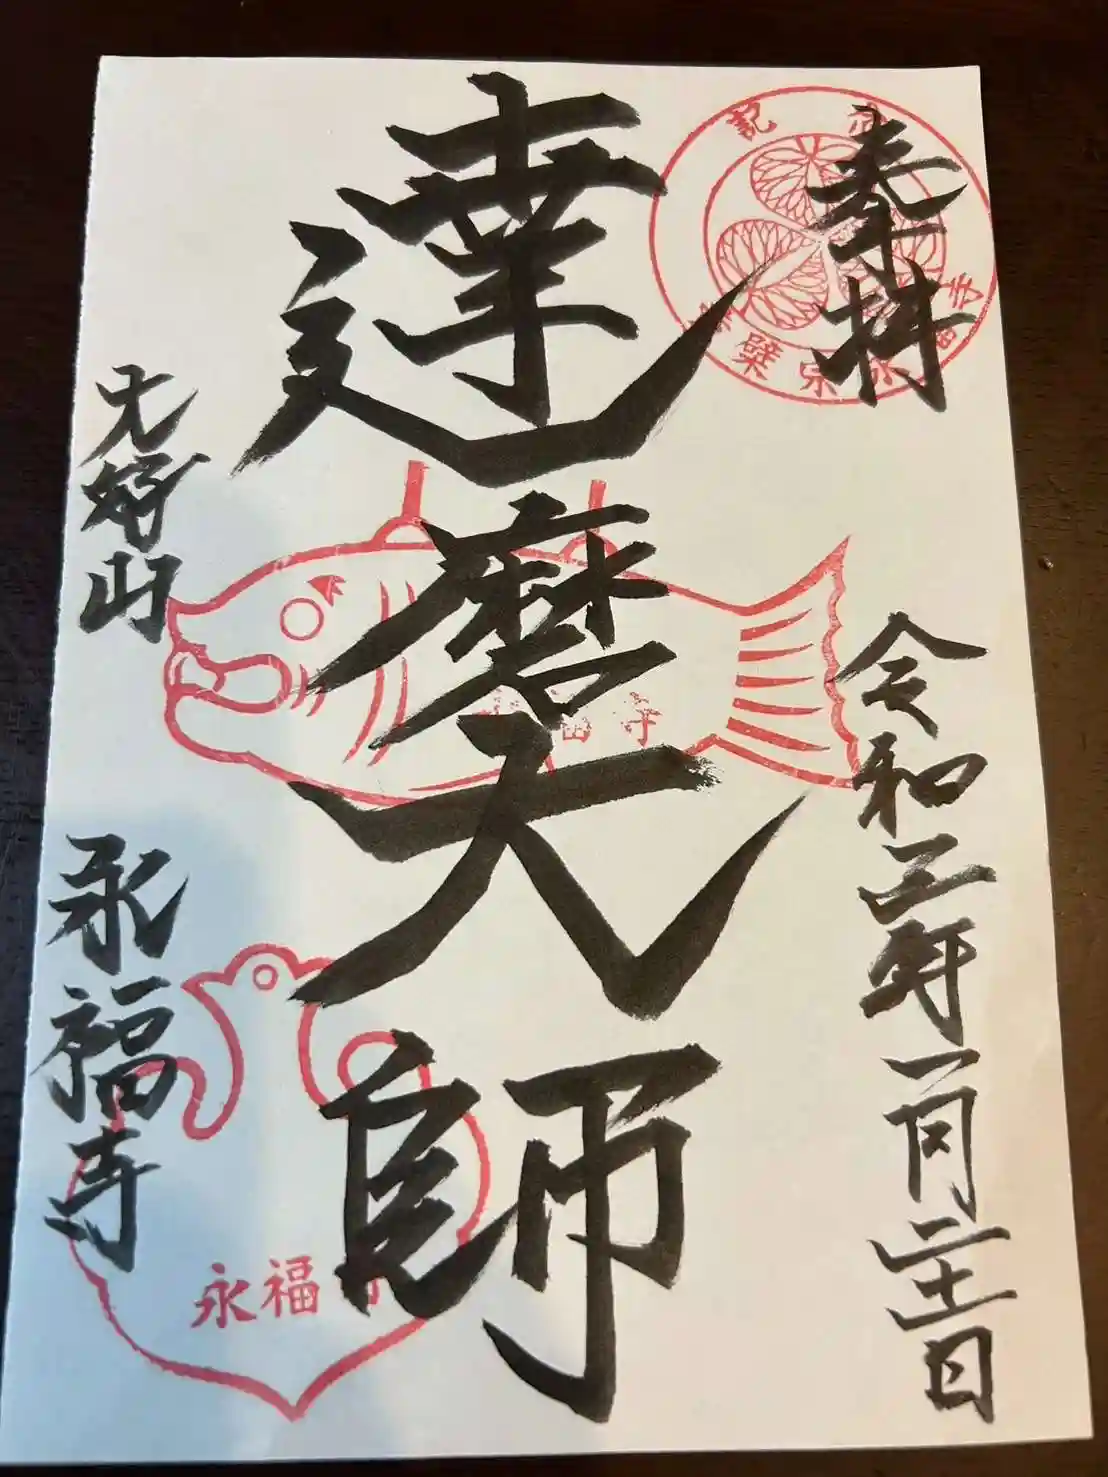 奉拝
令和三年一月二十一日
達磨大師
永福寺
永福